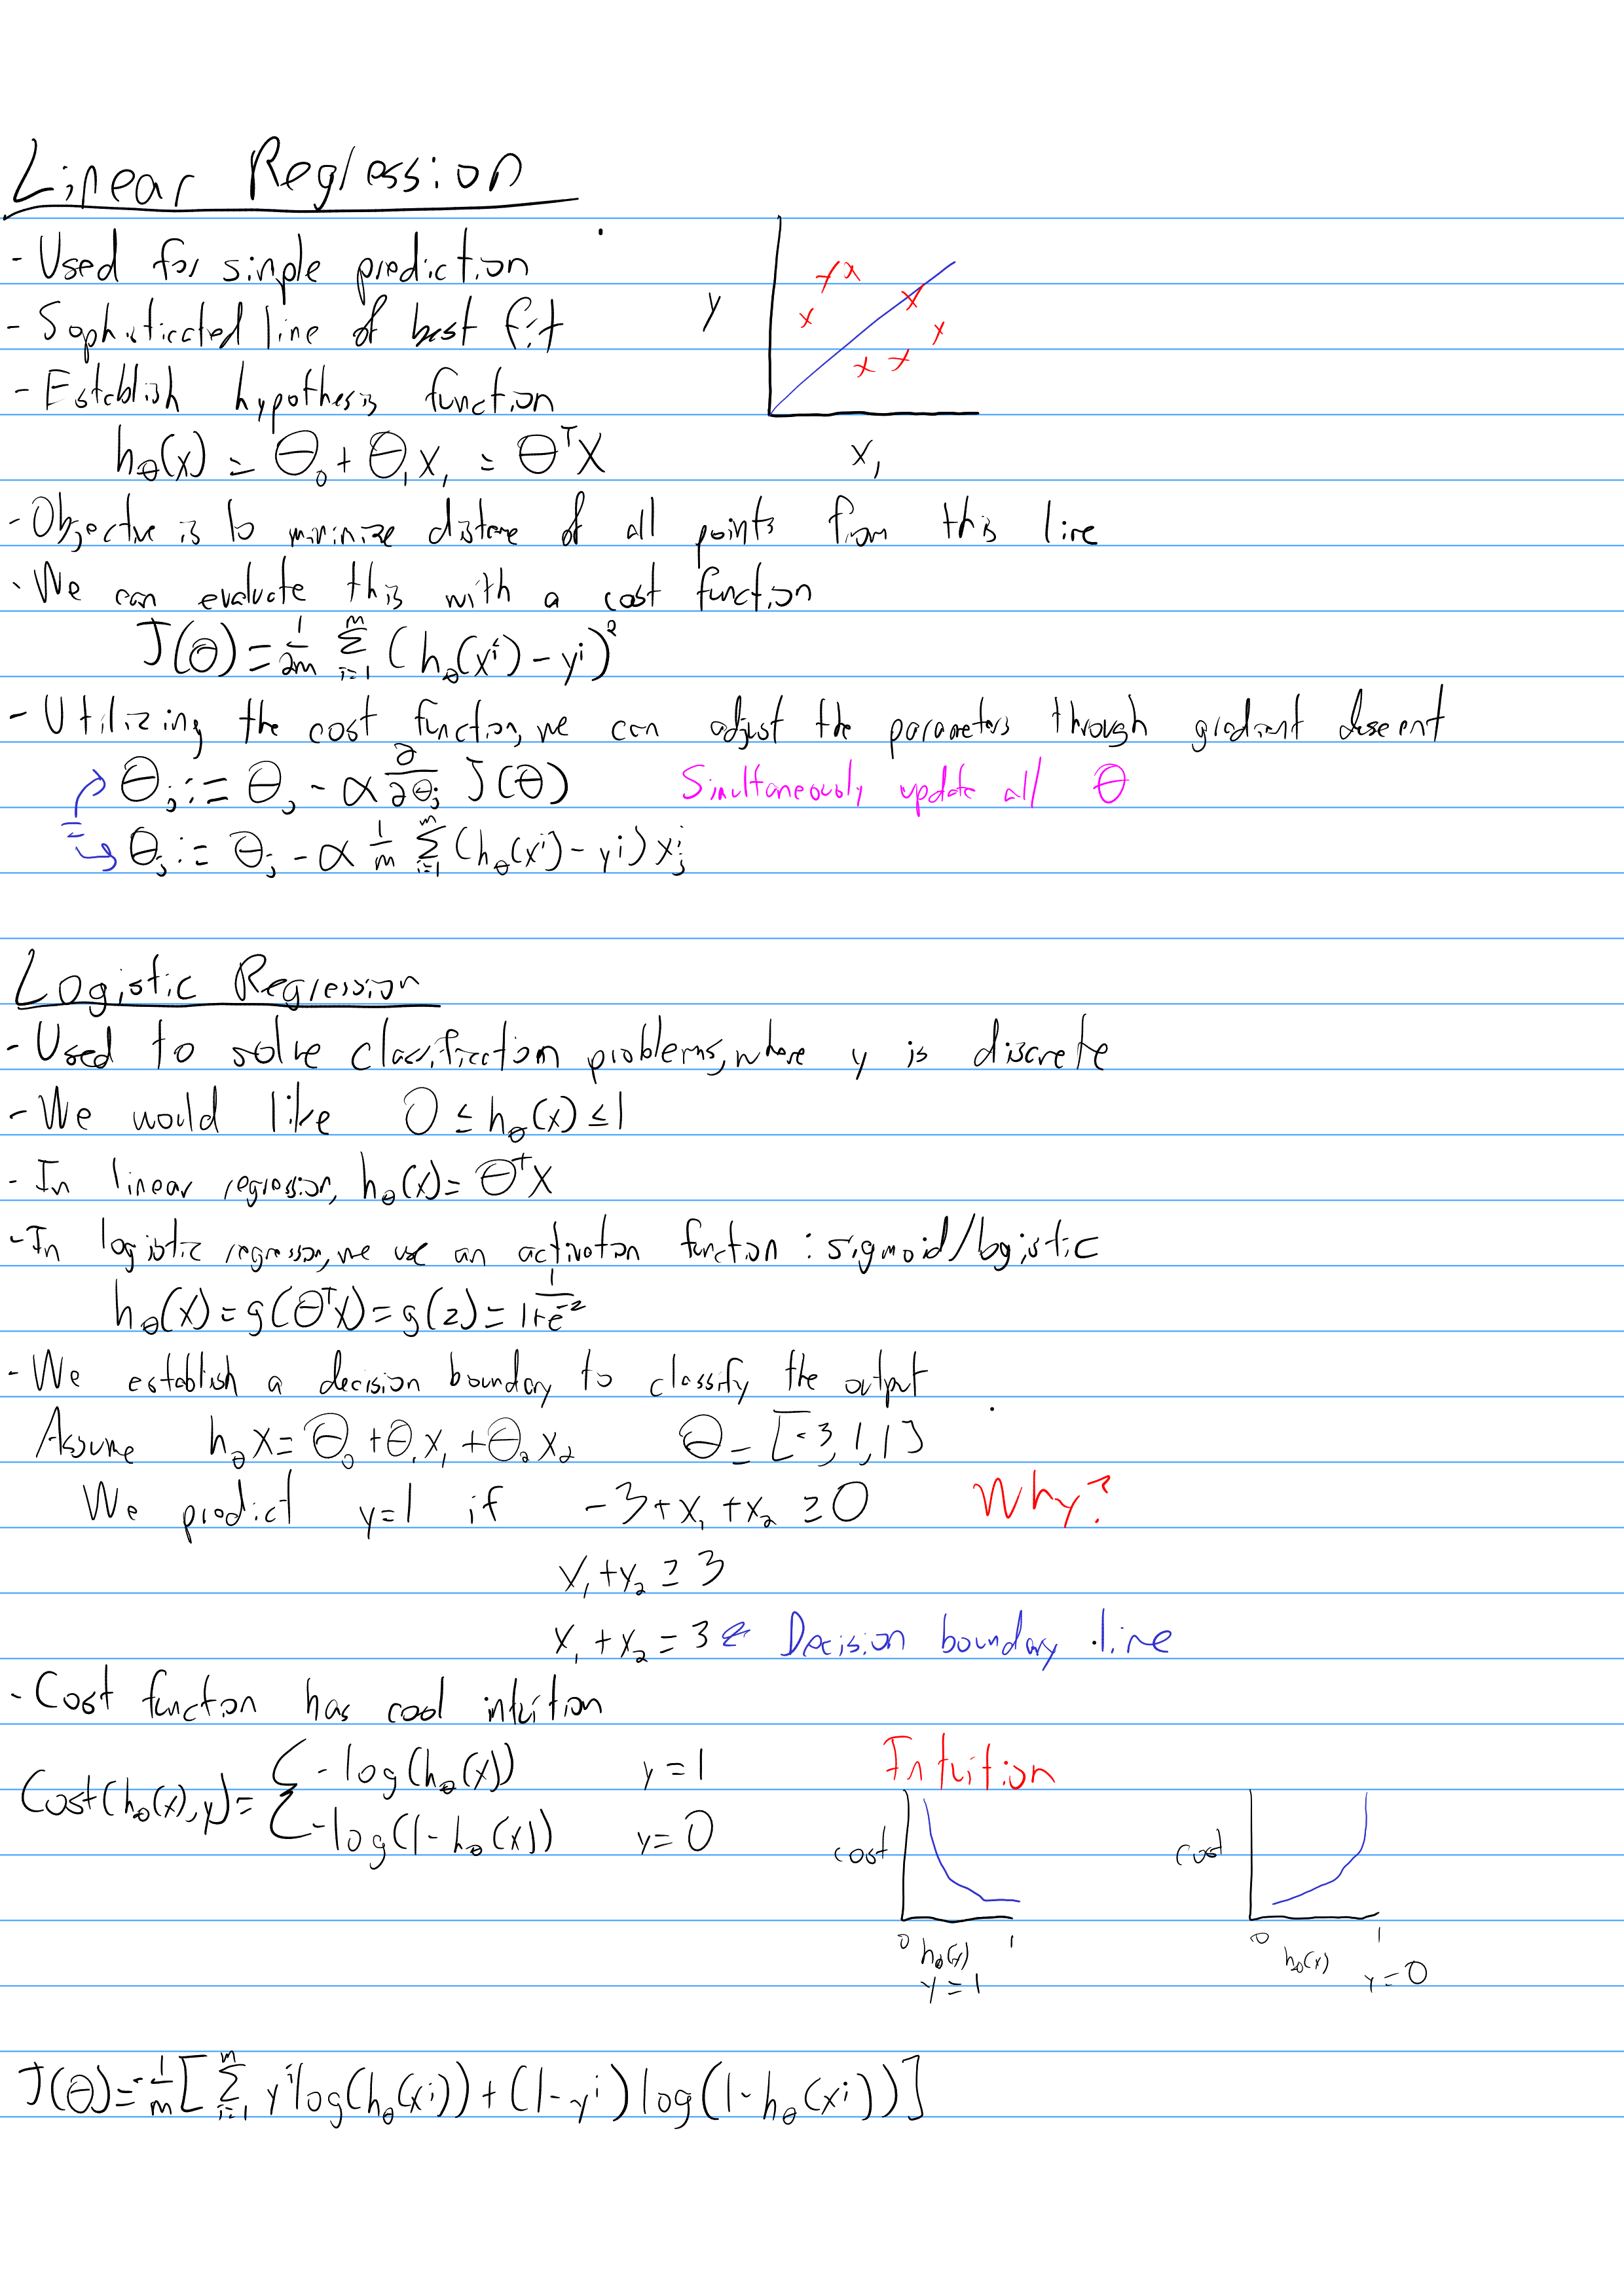 Linear Regression
- Used for simple prediction
- Sophisticated line of best fit
- Establish hypothesis function
y
x₁
h_θ(x) = θ₀ + θ₁x₁ = θᵀX
- Objective is to minimize distance of all points from this line
- We can evaluate this with a cost function
J(θ) = 1/2m Σ_{i=1}^{m} (h_θ(xⁱ) - yⁱ)²
- Utilizing the cost function, we can adjust the parameters through gradient descent
θ_j := θ_j - α ∂/∂θ_j J(θ) Simultaneously update all θ
=
θ_j := θ_j - α 1/m Σ_{i=1}^{m} (h_θ(xⁱ) - yⁱ) x_jⁱ
Logistic Regression
- Used to solve classification problems, where y is discrete
- We would like 0 ≤ h_θ(x) ≤ 1
- In linear regression, h_θ(x) = θᵀX
- In logistic regression, we use an activation function : sigmoid/logistic
h_θ(x) = g(θᵀx) = g(z) = 1/(1+e^{-z})
- We establish a decision boundary to classify the output
Assume h_θ x = θ₀ + θ₁x₁ + θ₂x₂ θ = [-3, 1, 1]
We predict y=1 if -3 + x₁ + x₂ ≥ 0 Why?
x₁ + x₂ ≥ 3
x₁ + x₂ = 3 ← Decision boundary line
- Cost function has cool intuition
Cost(h_θ(x), y) = { -log(h_θ(x)) y = 1
-log(1 - h_θ(x)) y = 0
Intuition
cost
0 h_θ(x) 1
y = 1
cost
0 h_θ(x) 1
y = 0
J(θ) = -1/m [ Σ_{i=1}^{m} yⁱ log(h_θ(xⁱ)) + (1 - yⁱ) log(1 - h_θ(xⁱ)) ]